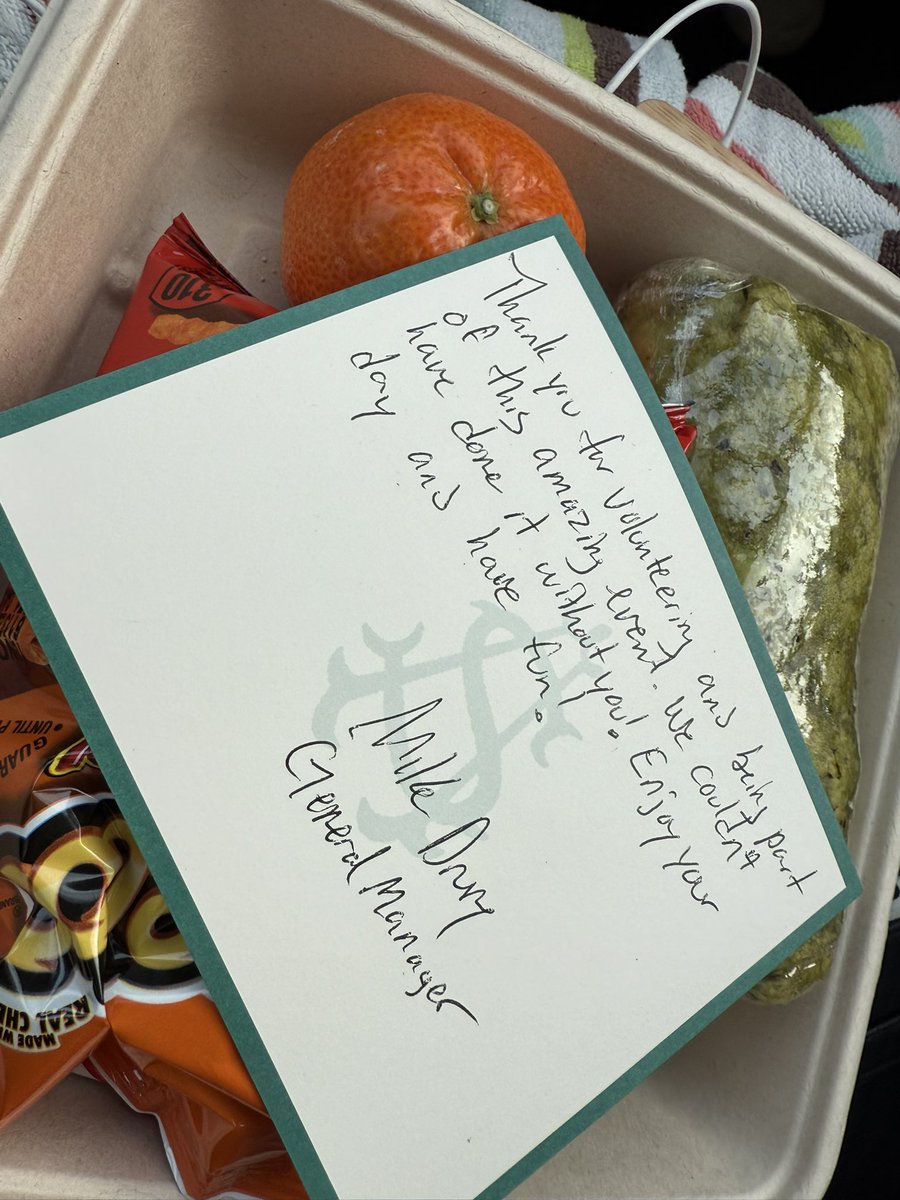 Thank you for volunteering and being part
of this amazing event. We couldn't
have done it without you! Enjoy your
day and have fun.
Mike
General Manager
310
GUAR
UNTIL P
MADE WI
REAL CHE